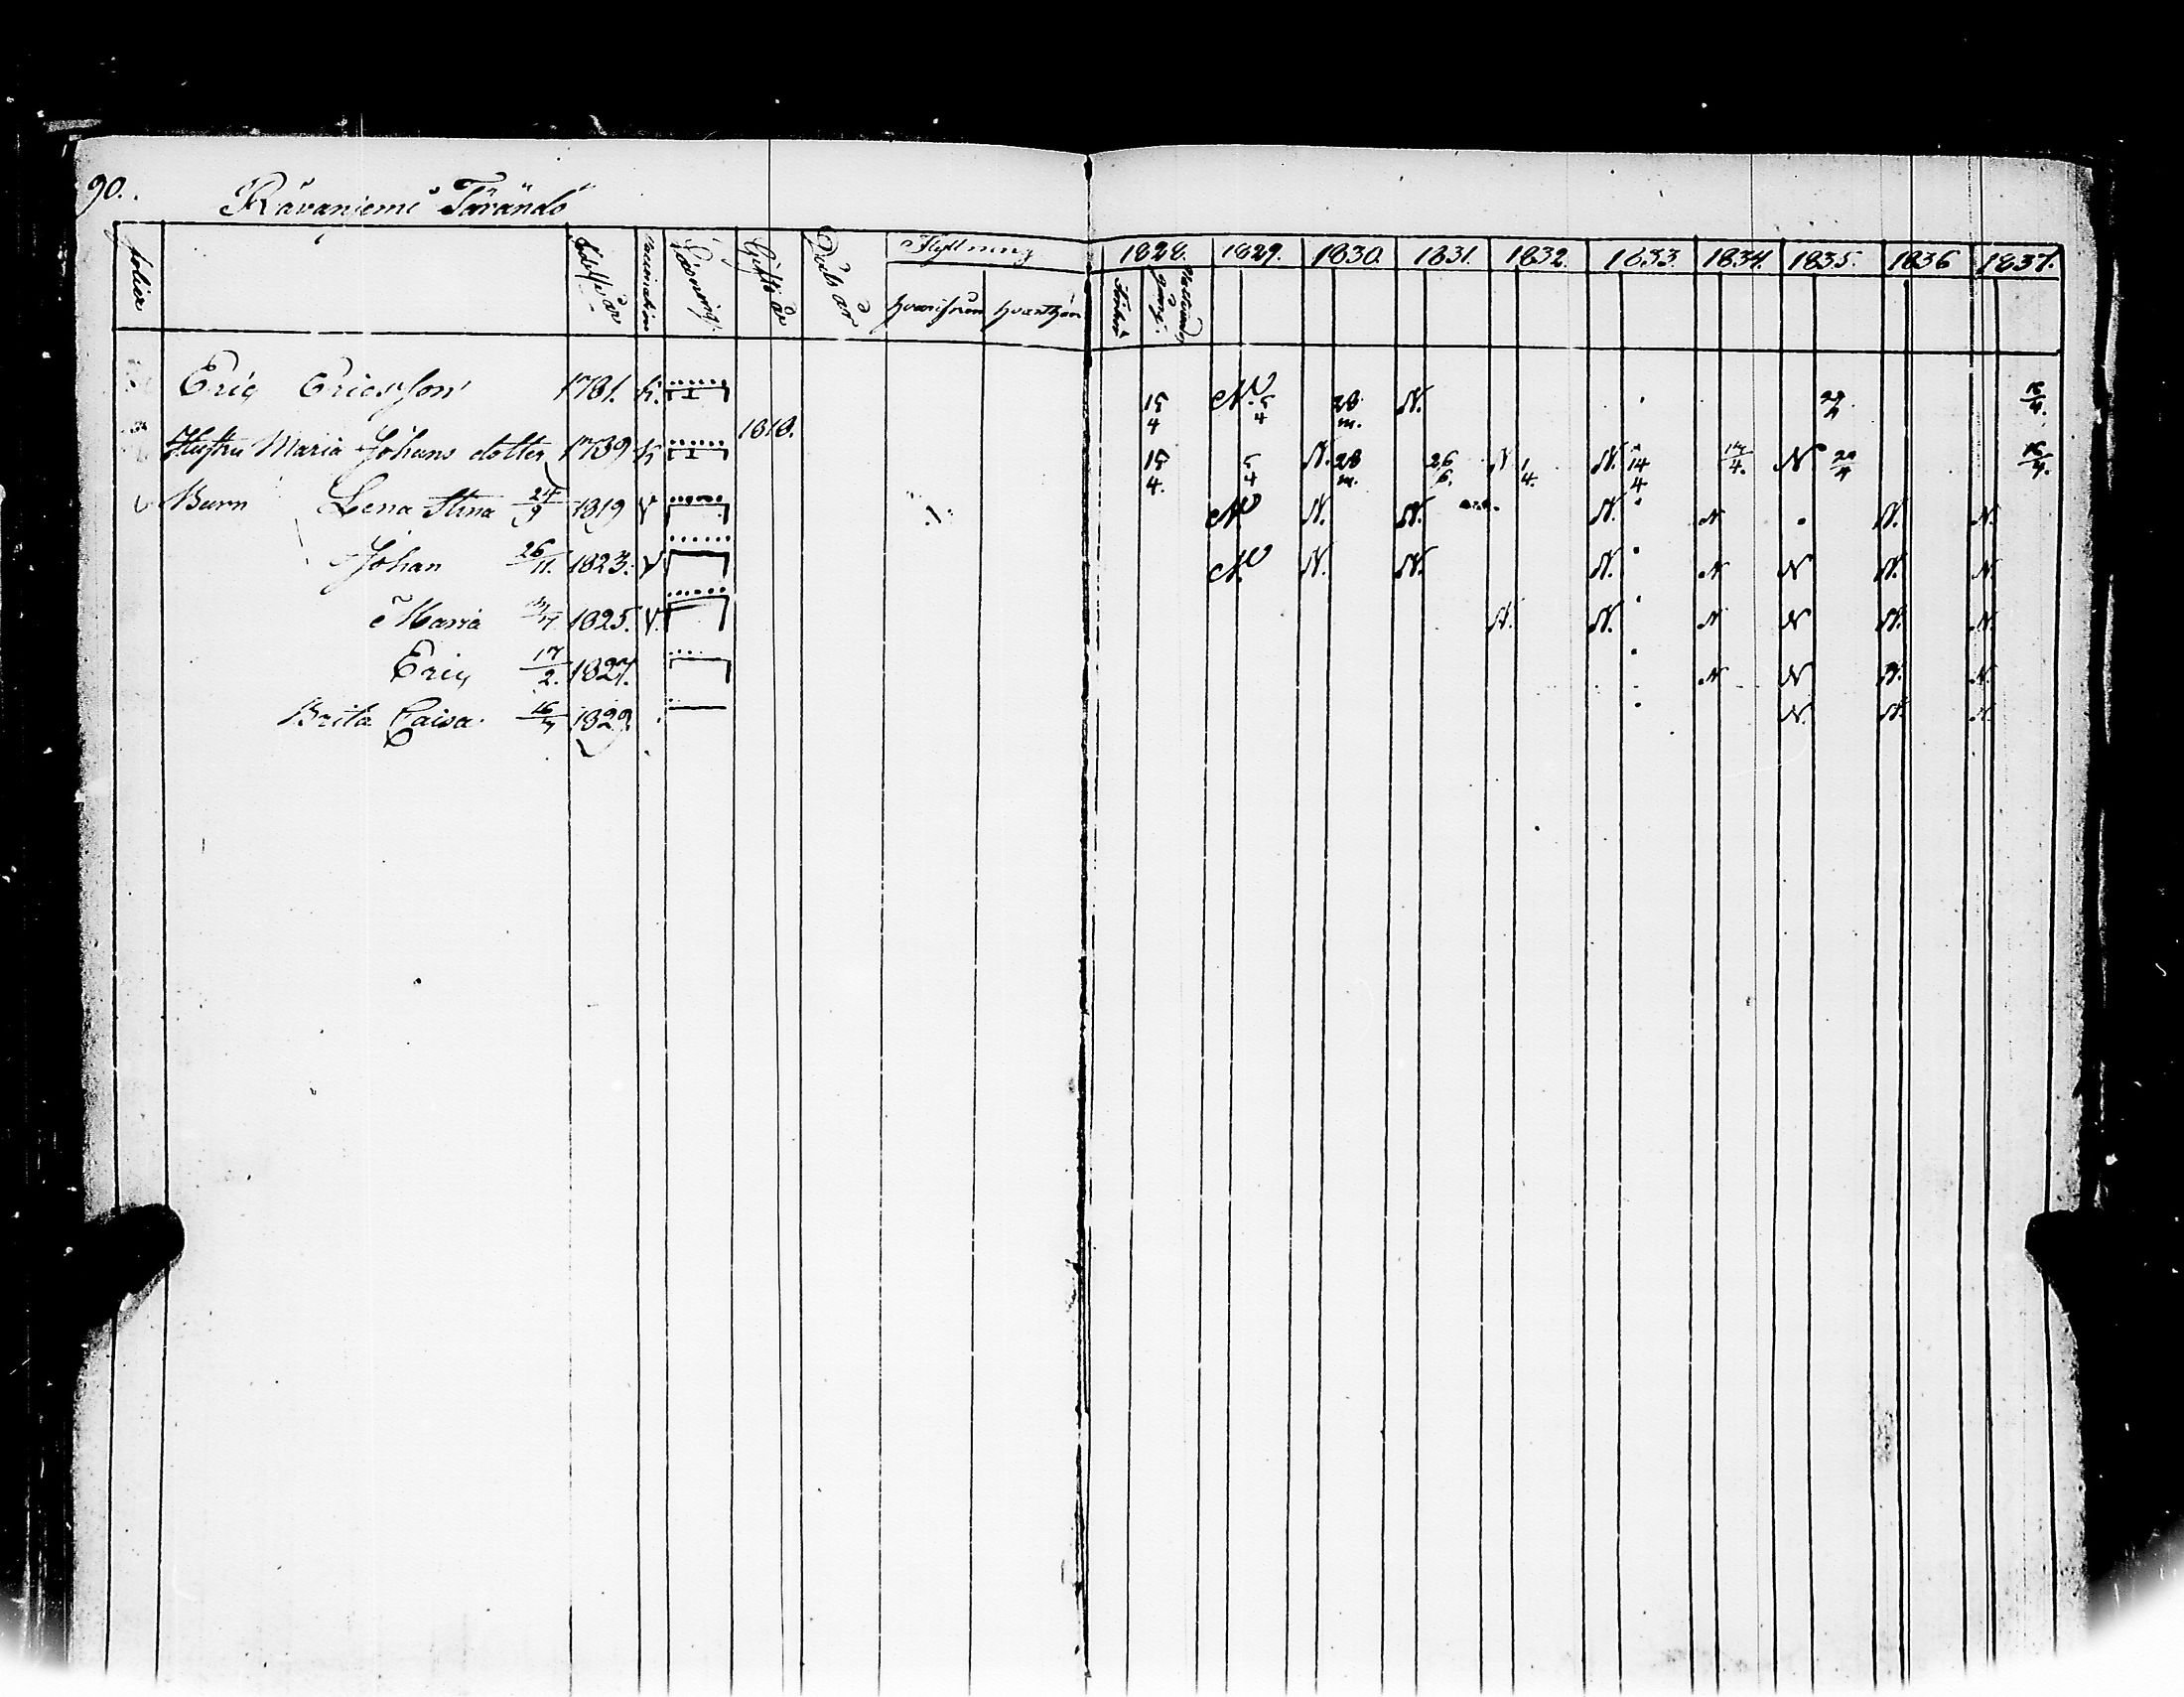 90.
Råvaniemi Tärändö
folier Födelse år Vaccination Läsning Gifte år Döds år Flyttning 1828. 1829. 1830. 1831. 1832. 1833. 1834. 1835. 1836 1837.
hvarifrån hvarthän Förhör Nattvards gång.
Eric Ericsson 1781. K. 15/4 N. 5/4 28/m. N. 29/4 16/4.
1818.
Hustru Maria Johans dotter 1789 K 15/4. 5/4 N. 28/m. 26/6. N 1/4. N. 14/4 14/4. N 20/4 16/4.
Barn Lena Stina 24/9 1819 V N N. N. N. N . N. N.
Johan 26/11. 1823. V N. N. N. N. N N N. N.
Maria 1825. V. N. N. N N N. N.
Eric 17/2. 1827. N N N. N.
Brita Caisa 16/4 1829. N. N. N.